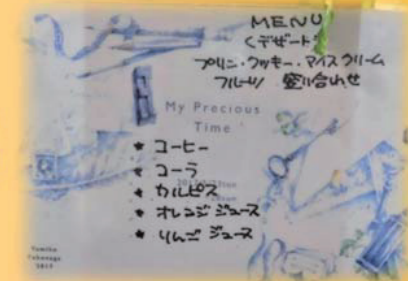 MENU
<デザート>
プリン・クッキー・アイスクリーム
フルーツ 盛り合わせ
My Precious
Time
* コーヒー
* コーラ
* カルピス
* オレンジジュース
* りんごジュース
Yumiko